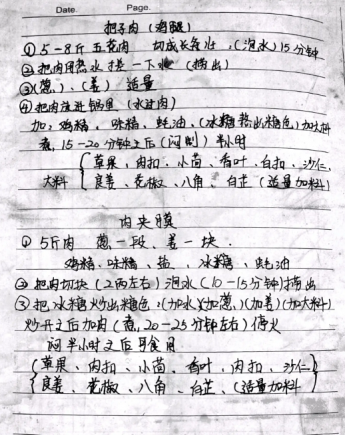 Date. Page.
把子肉 (鸡腿)
① 5-8斤 五花肉 切成长条状, (泡水) 15分钟
② 把肉用热水搓一下水 (捞出)
③ (葱)、(姜) 适量
④ 把肉放进锅里 (水过肉)
加, 鸡精, 味精、蚝油、(冰糖熬出糖色) 加大料
煮, 15-20分钟之后 (闷制) 半小时
大料 { 草果、肉扣、小茴、香叶、白扣、沙仁、
良姜、花椒、八角、白芷 (适量加料)
肉夹膜
① 5斤肉 葱一段、姜一块.
鸡精、味精、盐、冰糖、蚝油
② 把肉切块 (2两左右) 泡水 (10-15分钟) 捞出
③ 把冰糖炒出糖色, (加水) (加葱) (加姜) (加大料)
炒开之后加肉 (煮, 20-25分钟左右) 停火
闷半小时之后可食用
{ 草果、肉扣、小茴、香叶、肉扣、沙仁 }
良姜、花椒、八角、白芷、(适量加料)